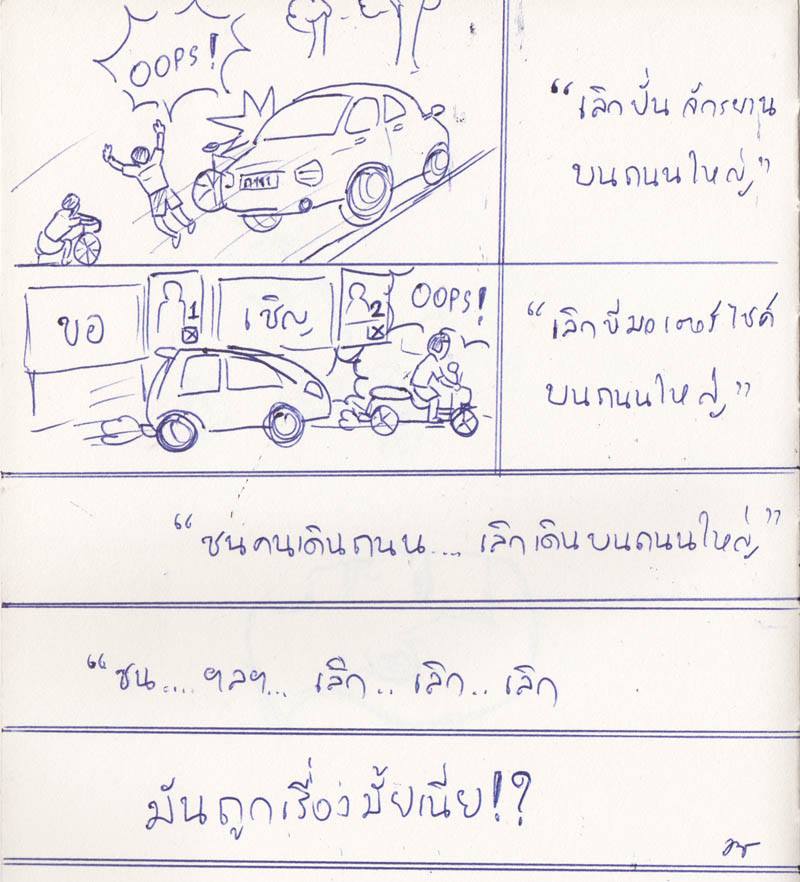 OOPS!
“เลิกปั่นจักรยาน
บนถนนใหญ่”
ขอ
1
เชิญ
2
OOPS!
“เลิกขี่มอเตอร์ไซค์
บนถนนใหญ่”
“ชนคนเดินถนน.... เลิกเดินบนถนนใหญ่”
“ชน.... ฯลฯ... เลิก.. เลิก.. เลิก
มันถูกเรื่องมั้ยเนี่ย!?